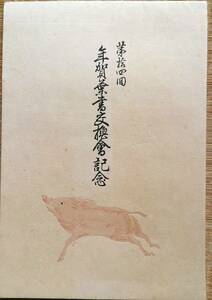 第拾四回
年賀葉書交換會記念